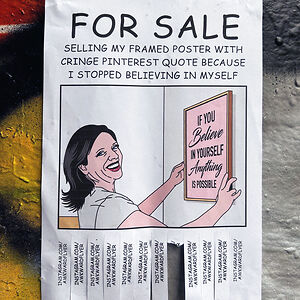 FOR SALE
SELLING MY FRAMED POSTER WITH
CRINGE PINTEREST QUOTE BECAUSE
I STOPPED BELIEVING IN MYSELF
IF YOU
Believe
IN YOURSELF
Anything
IS POSSIBLE
INSTAGRAM.COM/
AWKWARDFLYER
INSTAGRAM.COM/
AWKWARDFLYER
INSTAGRAM.COM/
AWKWARDFLYER
INSTAGRAM.COM/
AWKWARDFLYER
INSTAGRAM.COM/
AWKWARDFLYER
INSTAGRAM.COM/
AWKWARDFLYER
INSTAGRAM.COM/
AWKWARDFLYER
INSTAGRAM.COM/
AWKWARDFLYER
INSTAGRAM.COM/
AWKWARDFLYER
INSTAGRAM.COM/
AWKWARDFLYER